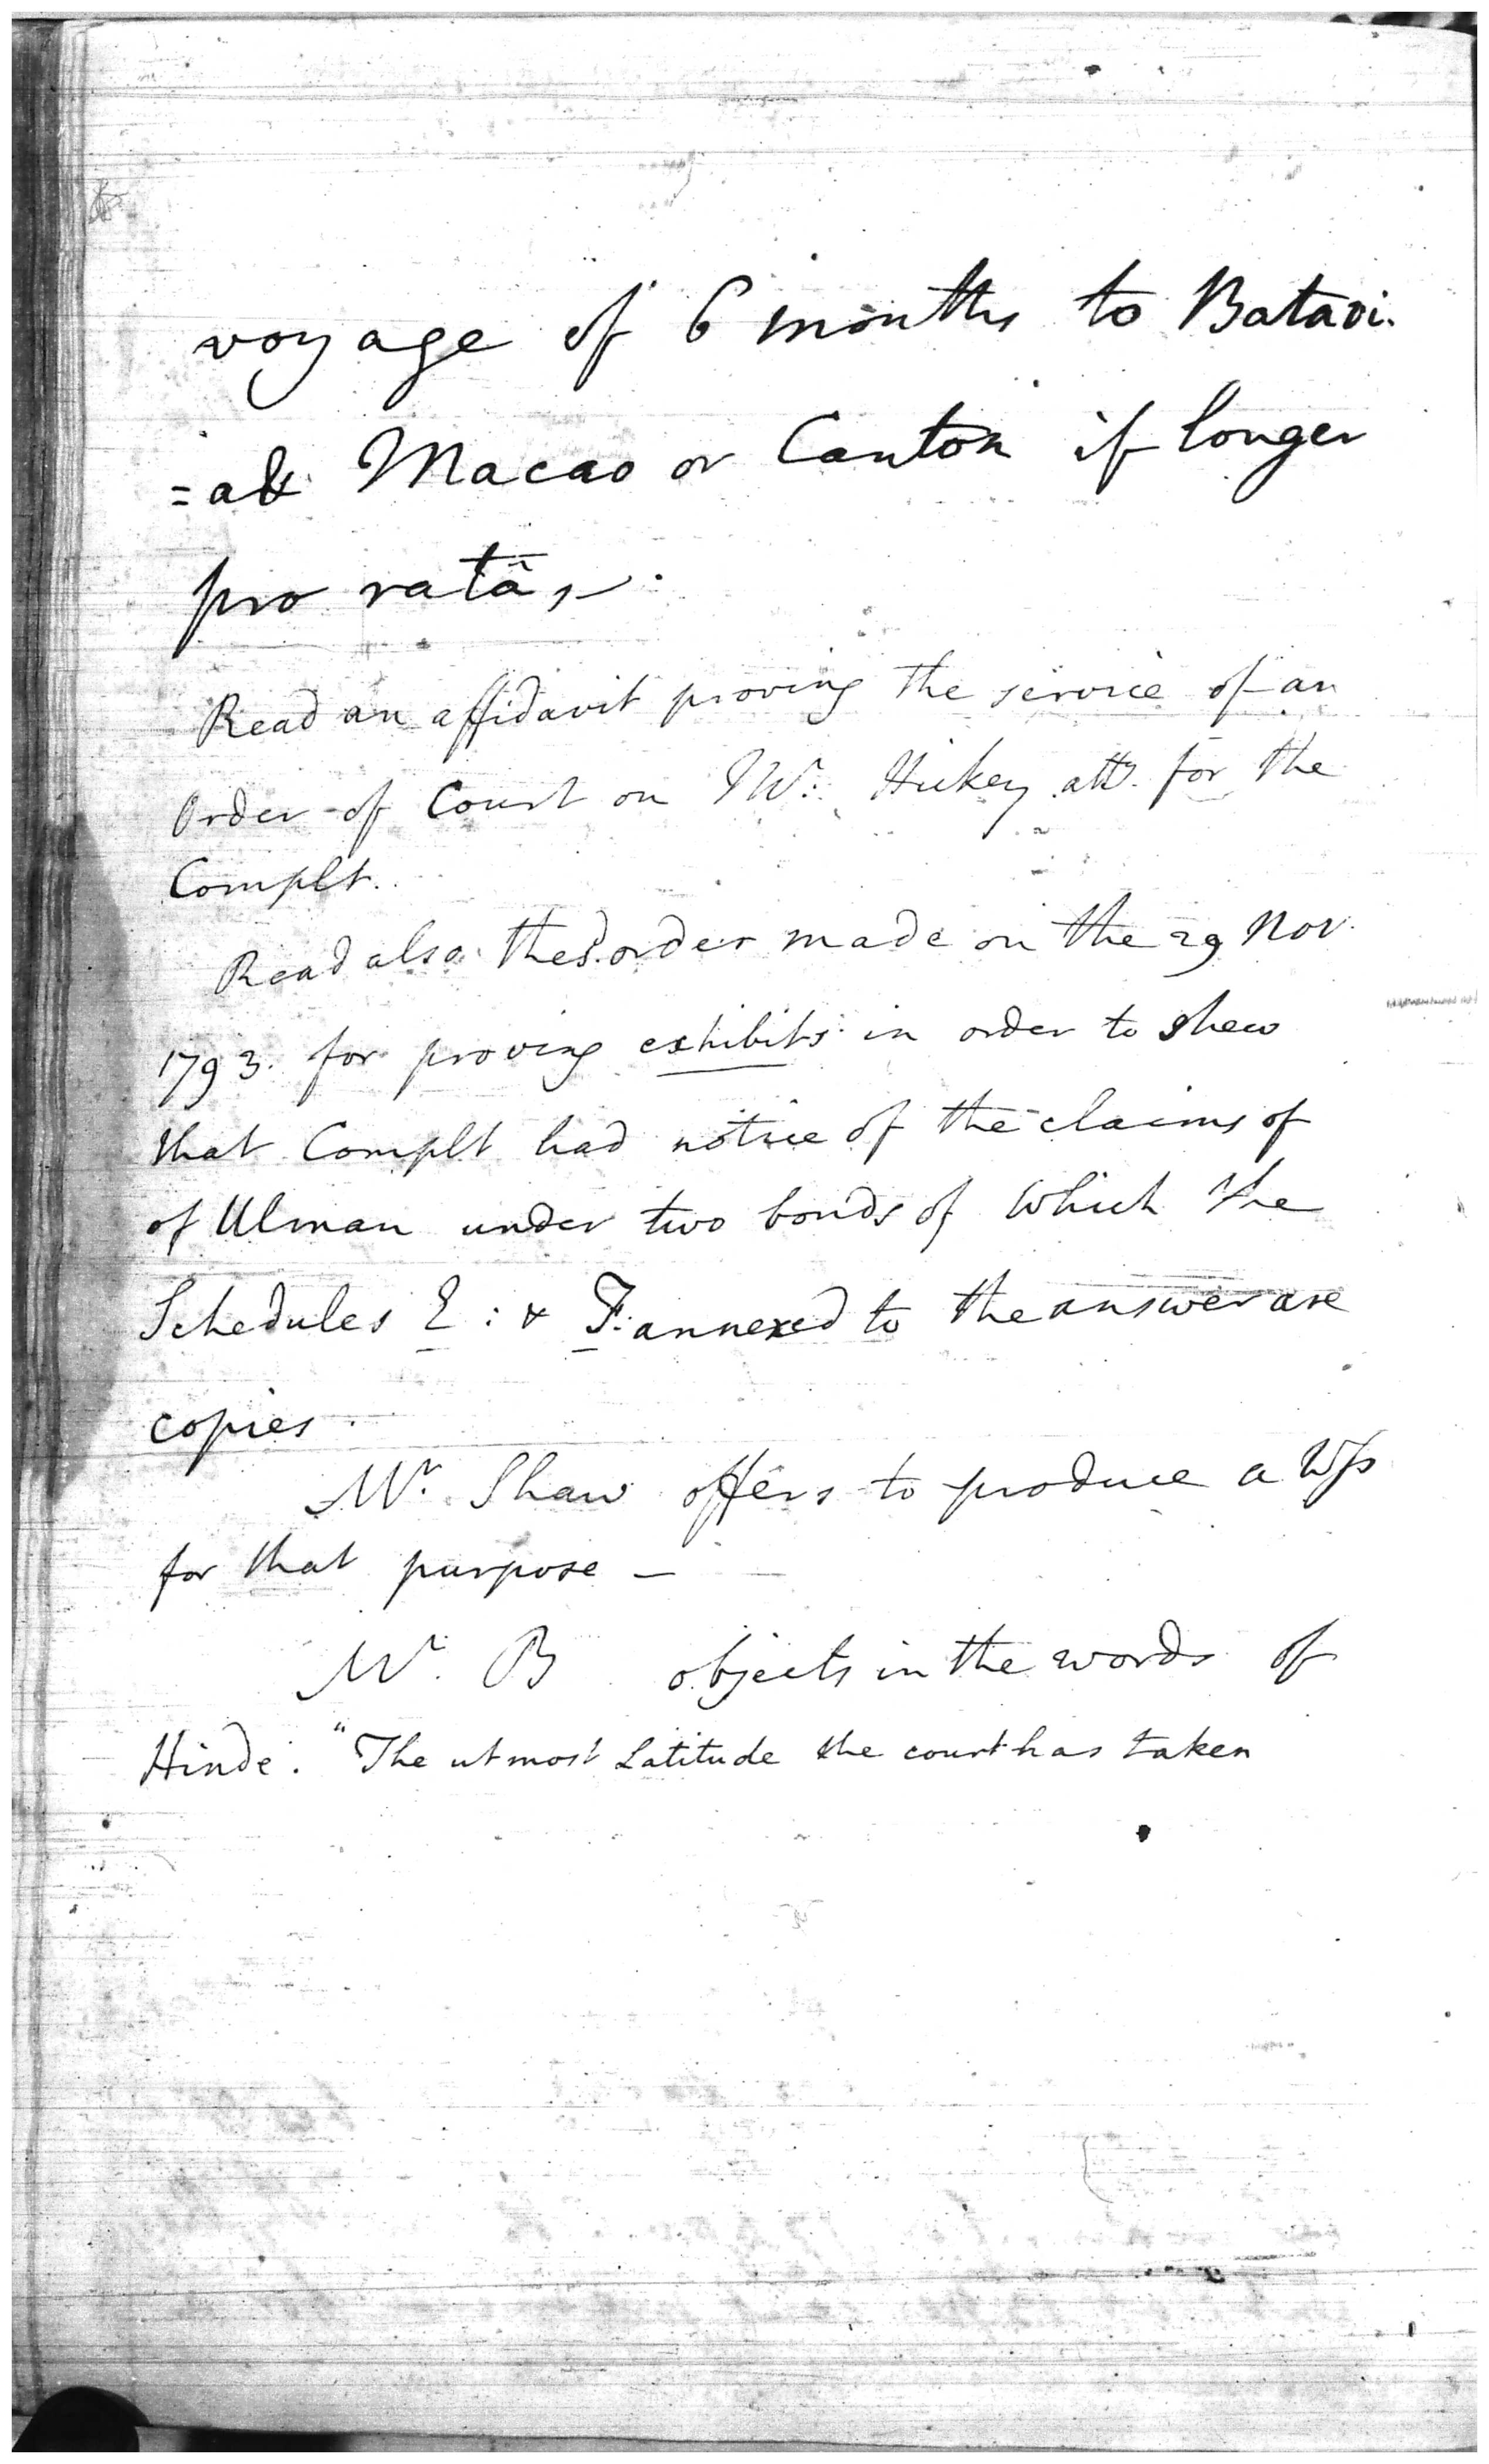 voyage of 6 months to Batavi.
=a & Macao or Canton if longer
pro ratâ,
Read an affidavit proving the service of an
Order of Court on Mr. Hickey atty. for the
Complt.
Read also the sd. order made on the 29 Nov.
1793. for proving exhibits in order to shew
that Complt had notice of the claims of
of Ulman under two bonds of which the
Schedules E: & F: annexed to the answer are
copies.
Mr. Shaw offers to produce a Wss
for that purpose –
Mr. B objects in the words of
Hinde. "The utmost Latitude the court has taken